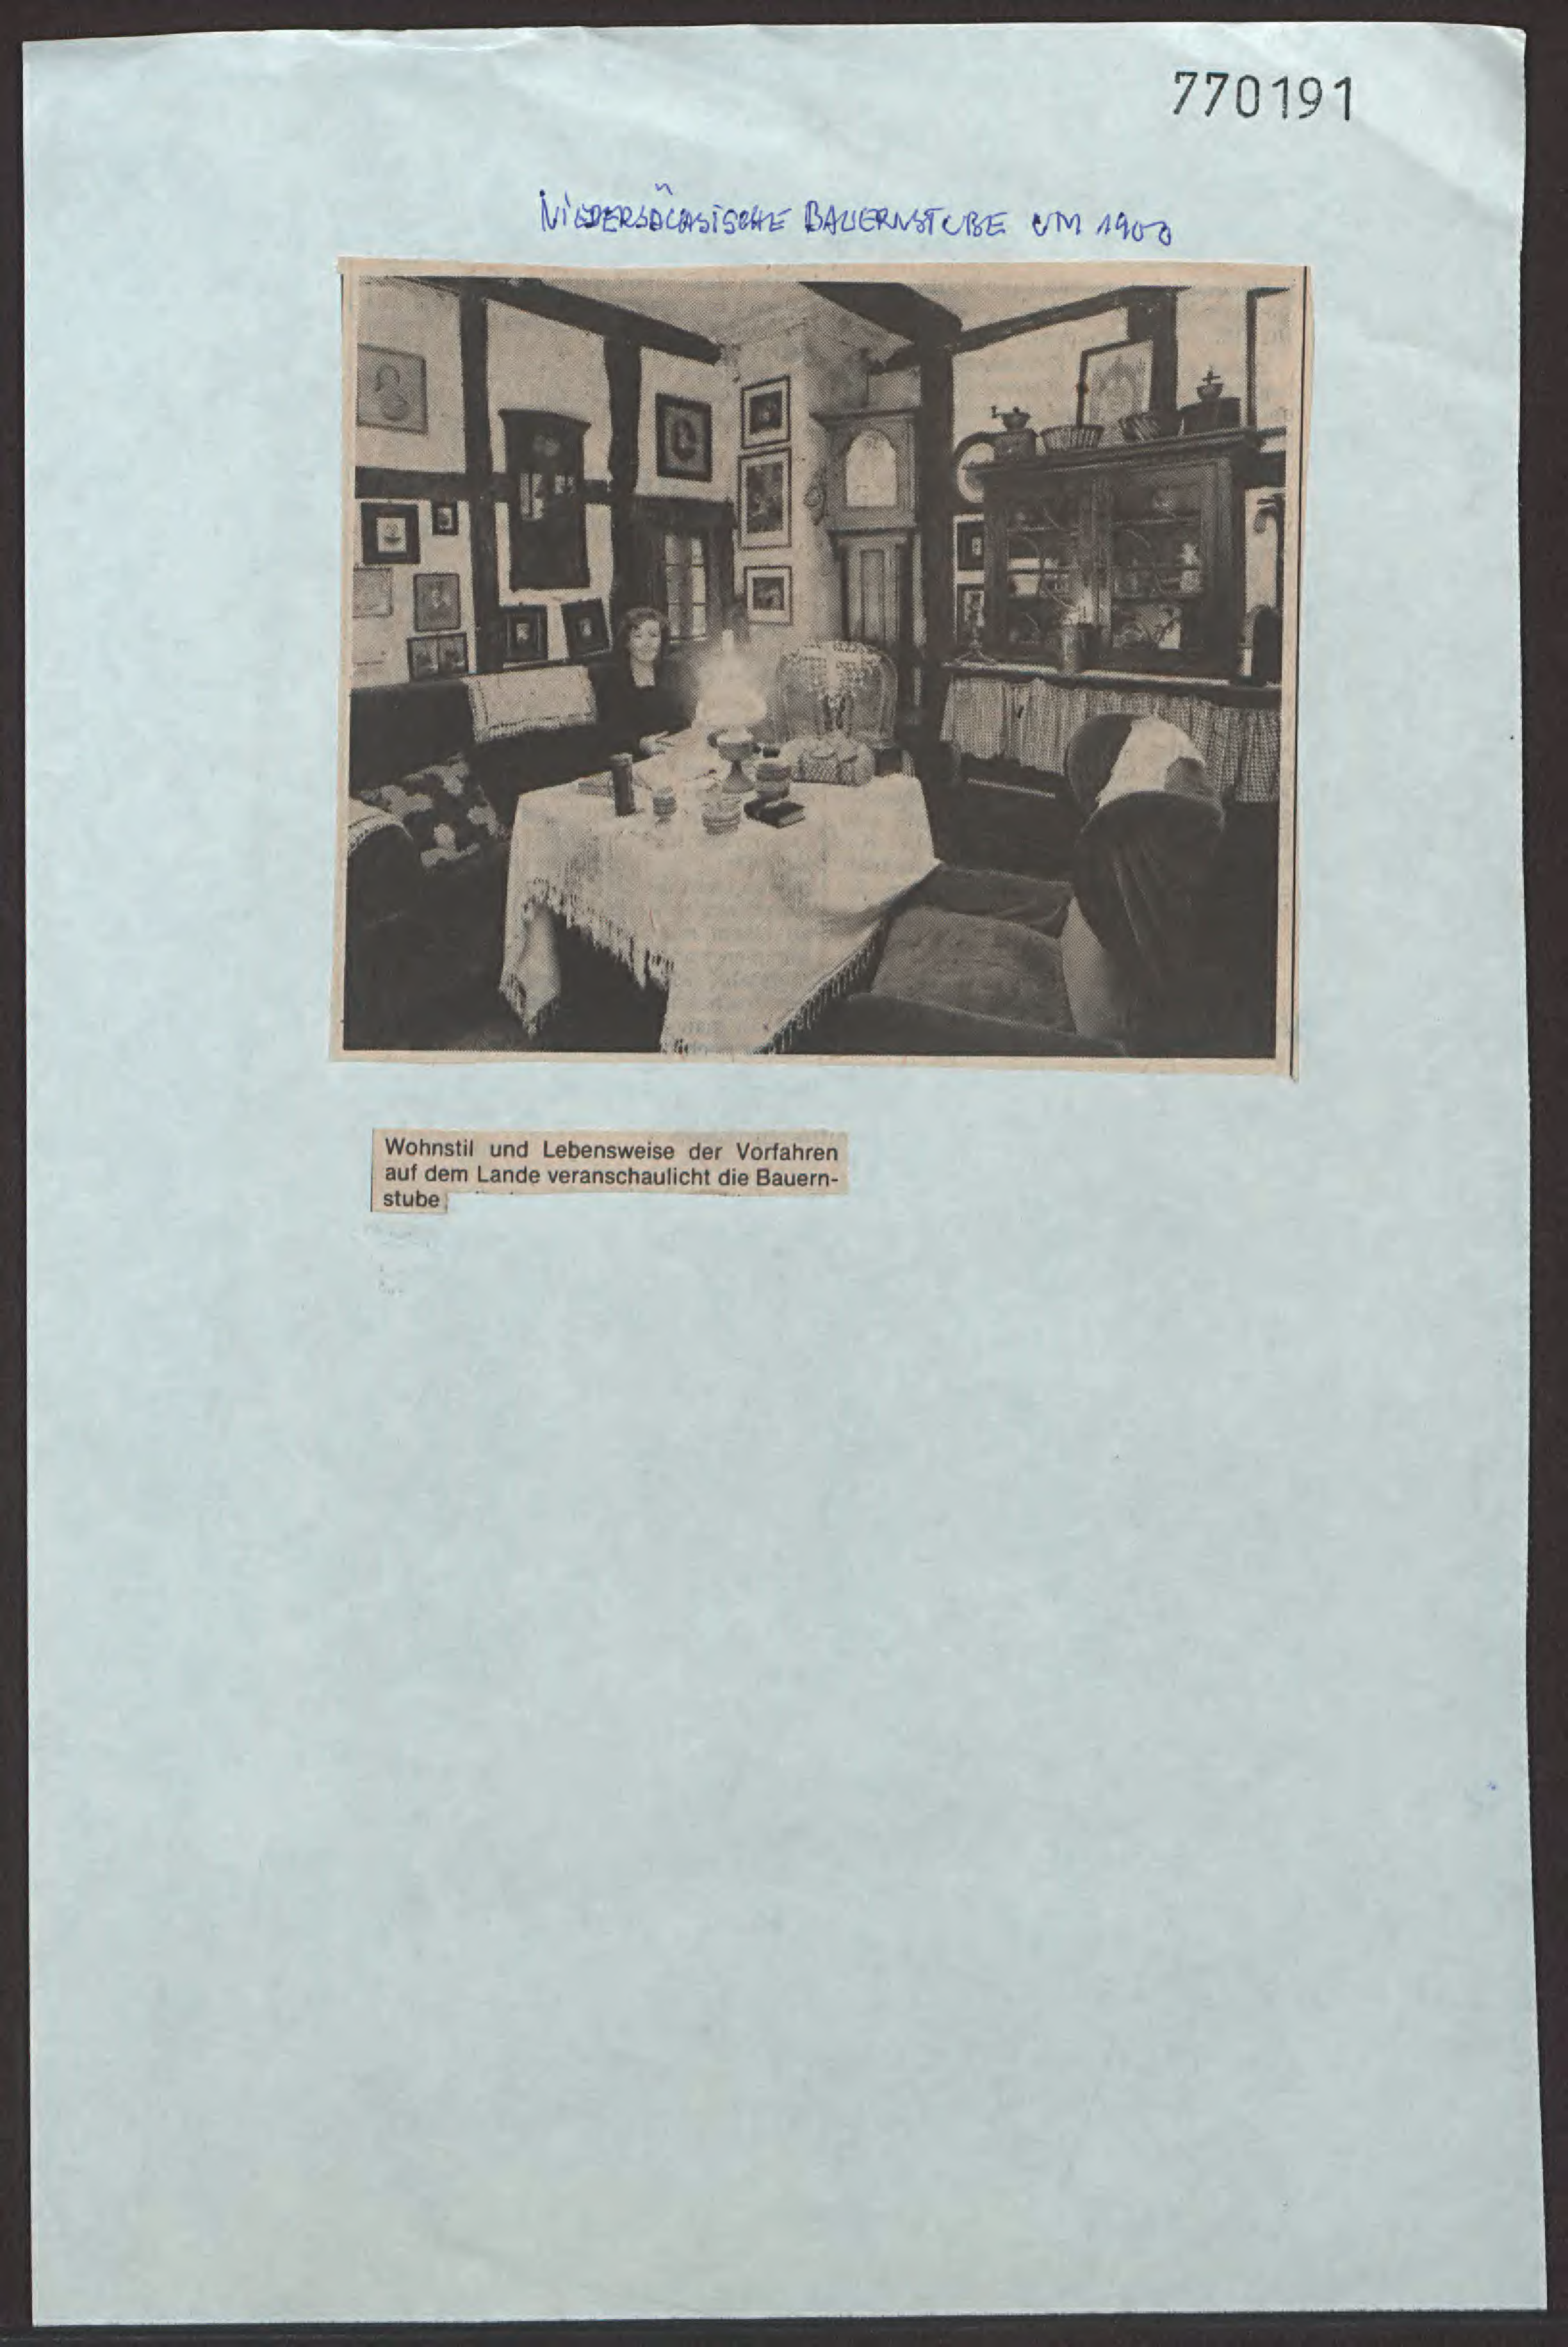 770191
NIEDERSÄCHSISCHE BAUERNSTUBE UM 1900
Wohnstil und Lebensweise der Vorfahren
auf dem Lande veranschaulicht die Bauern-
stube